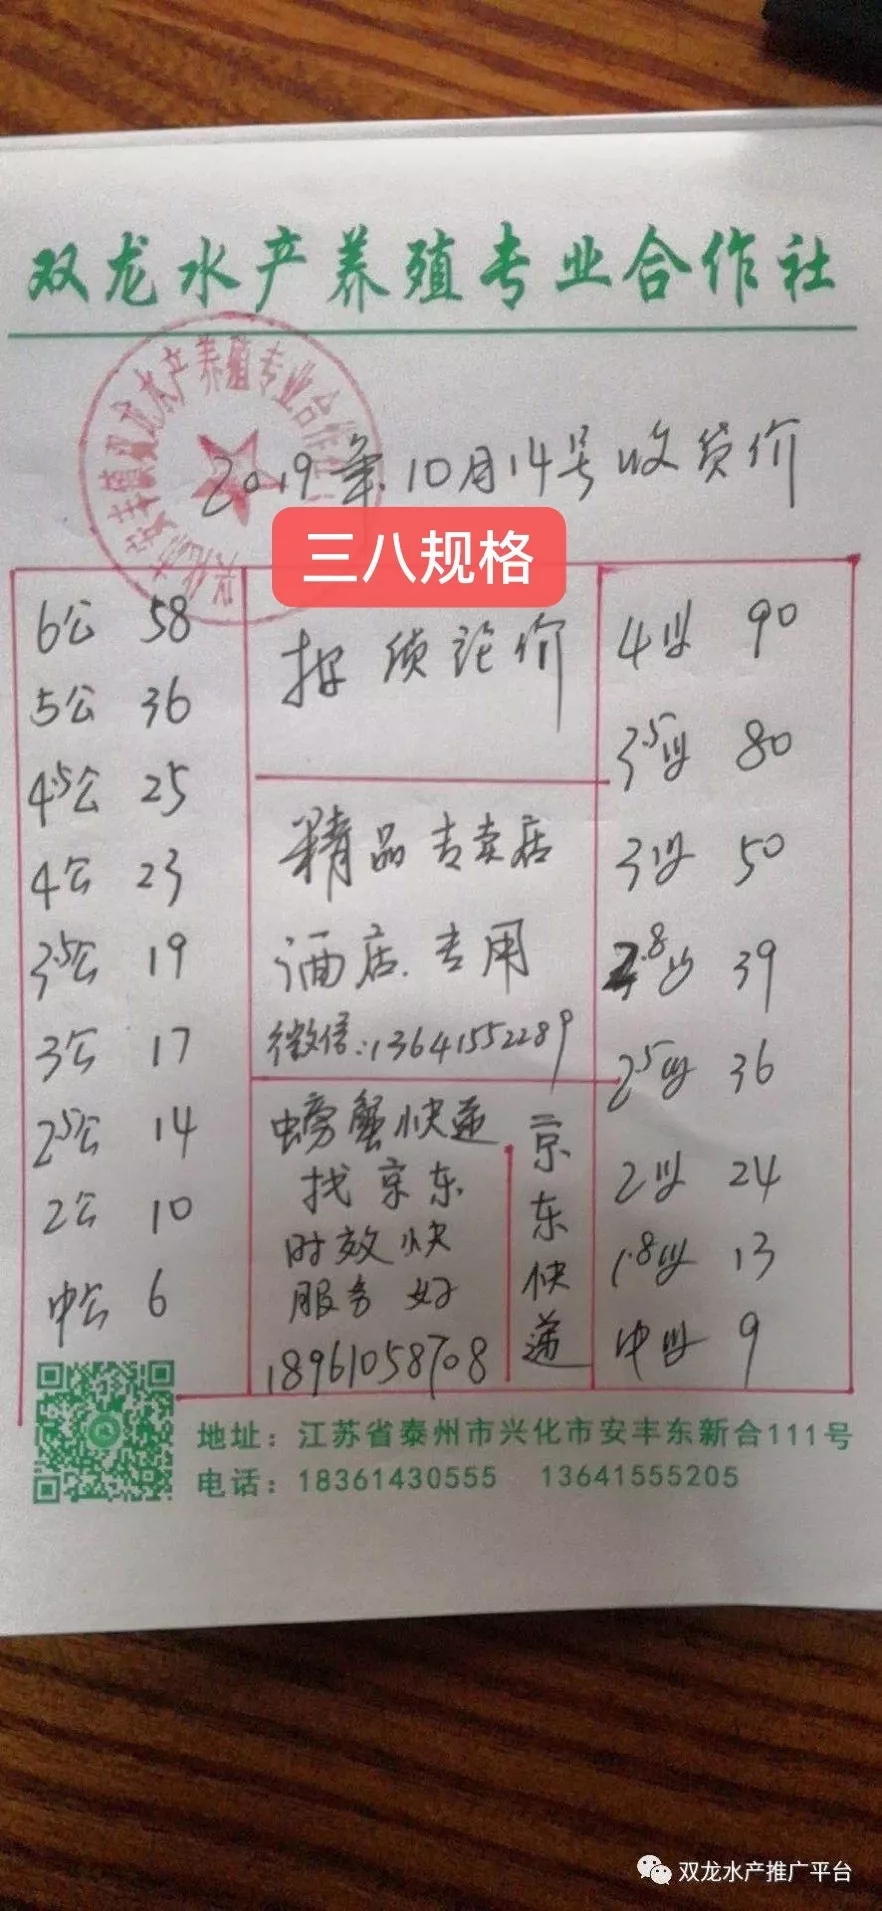 双龙水产养殖专业合作社
2019年10月14号收货价
三八规格
6公 58
5公 36
4.5公 25
4公 23
3.5公 19
3公 17
2.5公 14
2公 10
中公 6
按质论价
精品专卖店
酒店.专用
微信:13641552289
螃蟹快递
找京东
时效快
服务好
18961058708
京东快递
4母 90
3.5母 80
3母 50
2.8母 39
2.5母 36
2母 24
1.8母 13
中母 9
地址：江苏省泰州市兴化市安丰东新合111号
电话：18361430555 13641555205
双龙水产推广平台